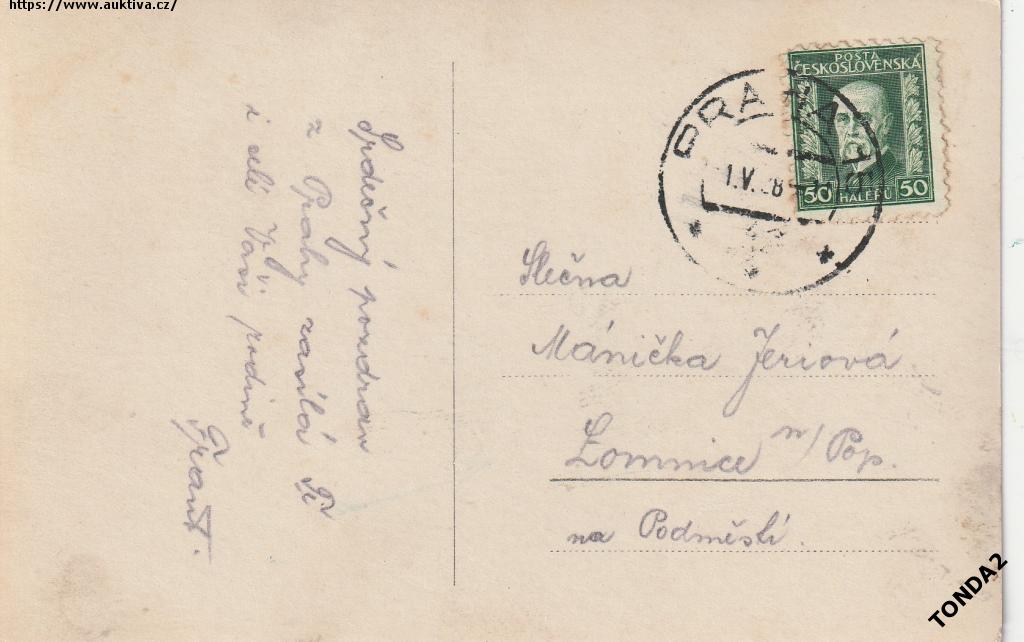 https://www.auktiva.cz/
Srdečný pozdrav
z Prahy zasílá Ti
i celé Vaší rodině
Frant.
POŠTA
ČESKOSLOVENSKÁ
50 HALÉŘŮ 50
PRAHA
1.V. 28
Slečna
Mánička Jeriová
Lomnice n/Pop.
na Podměstí.
TONDA2